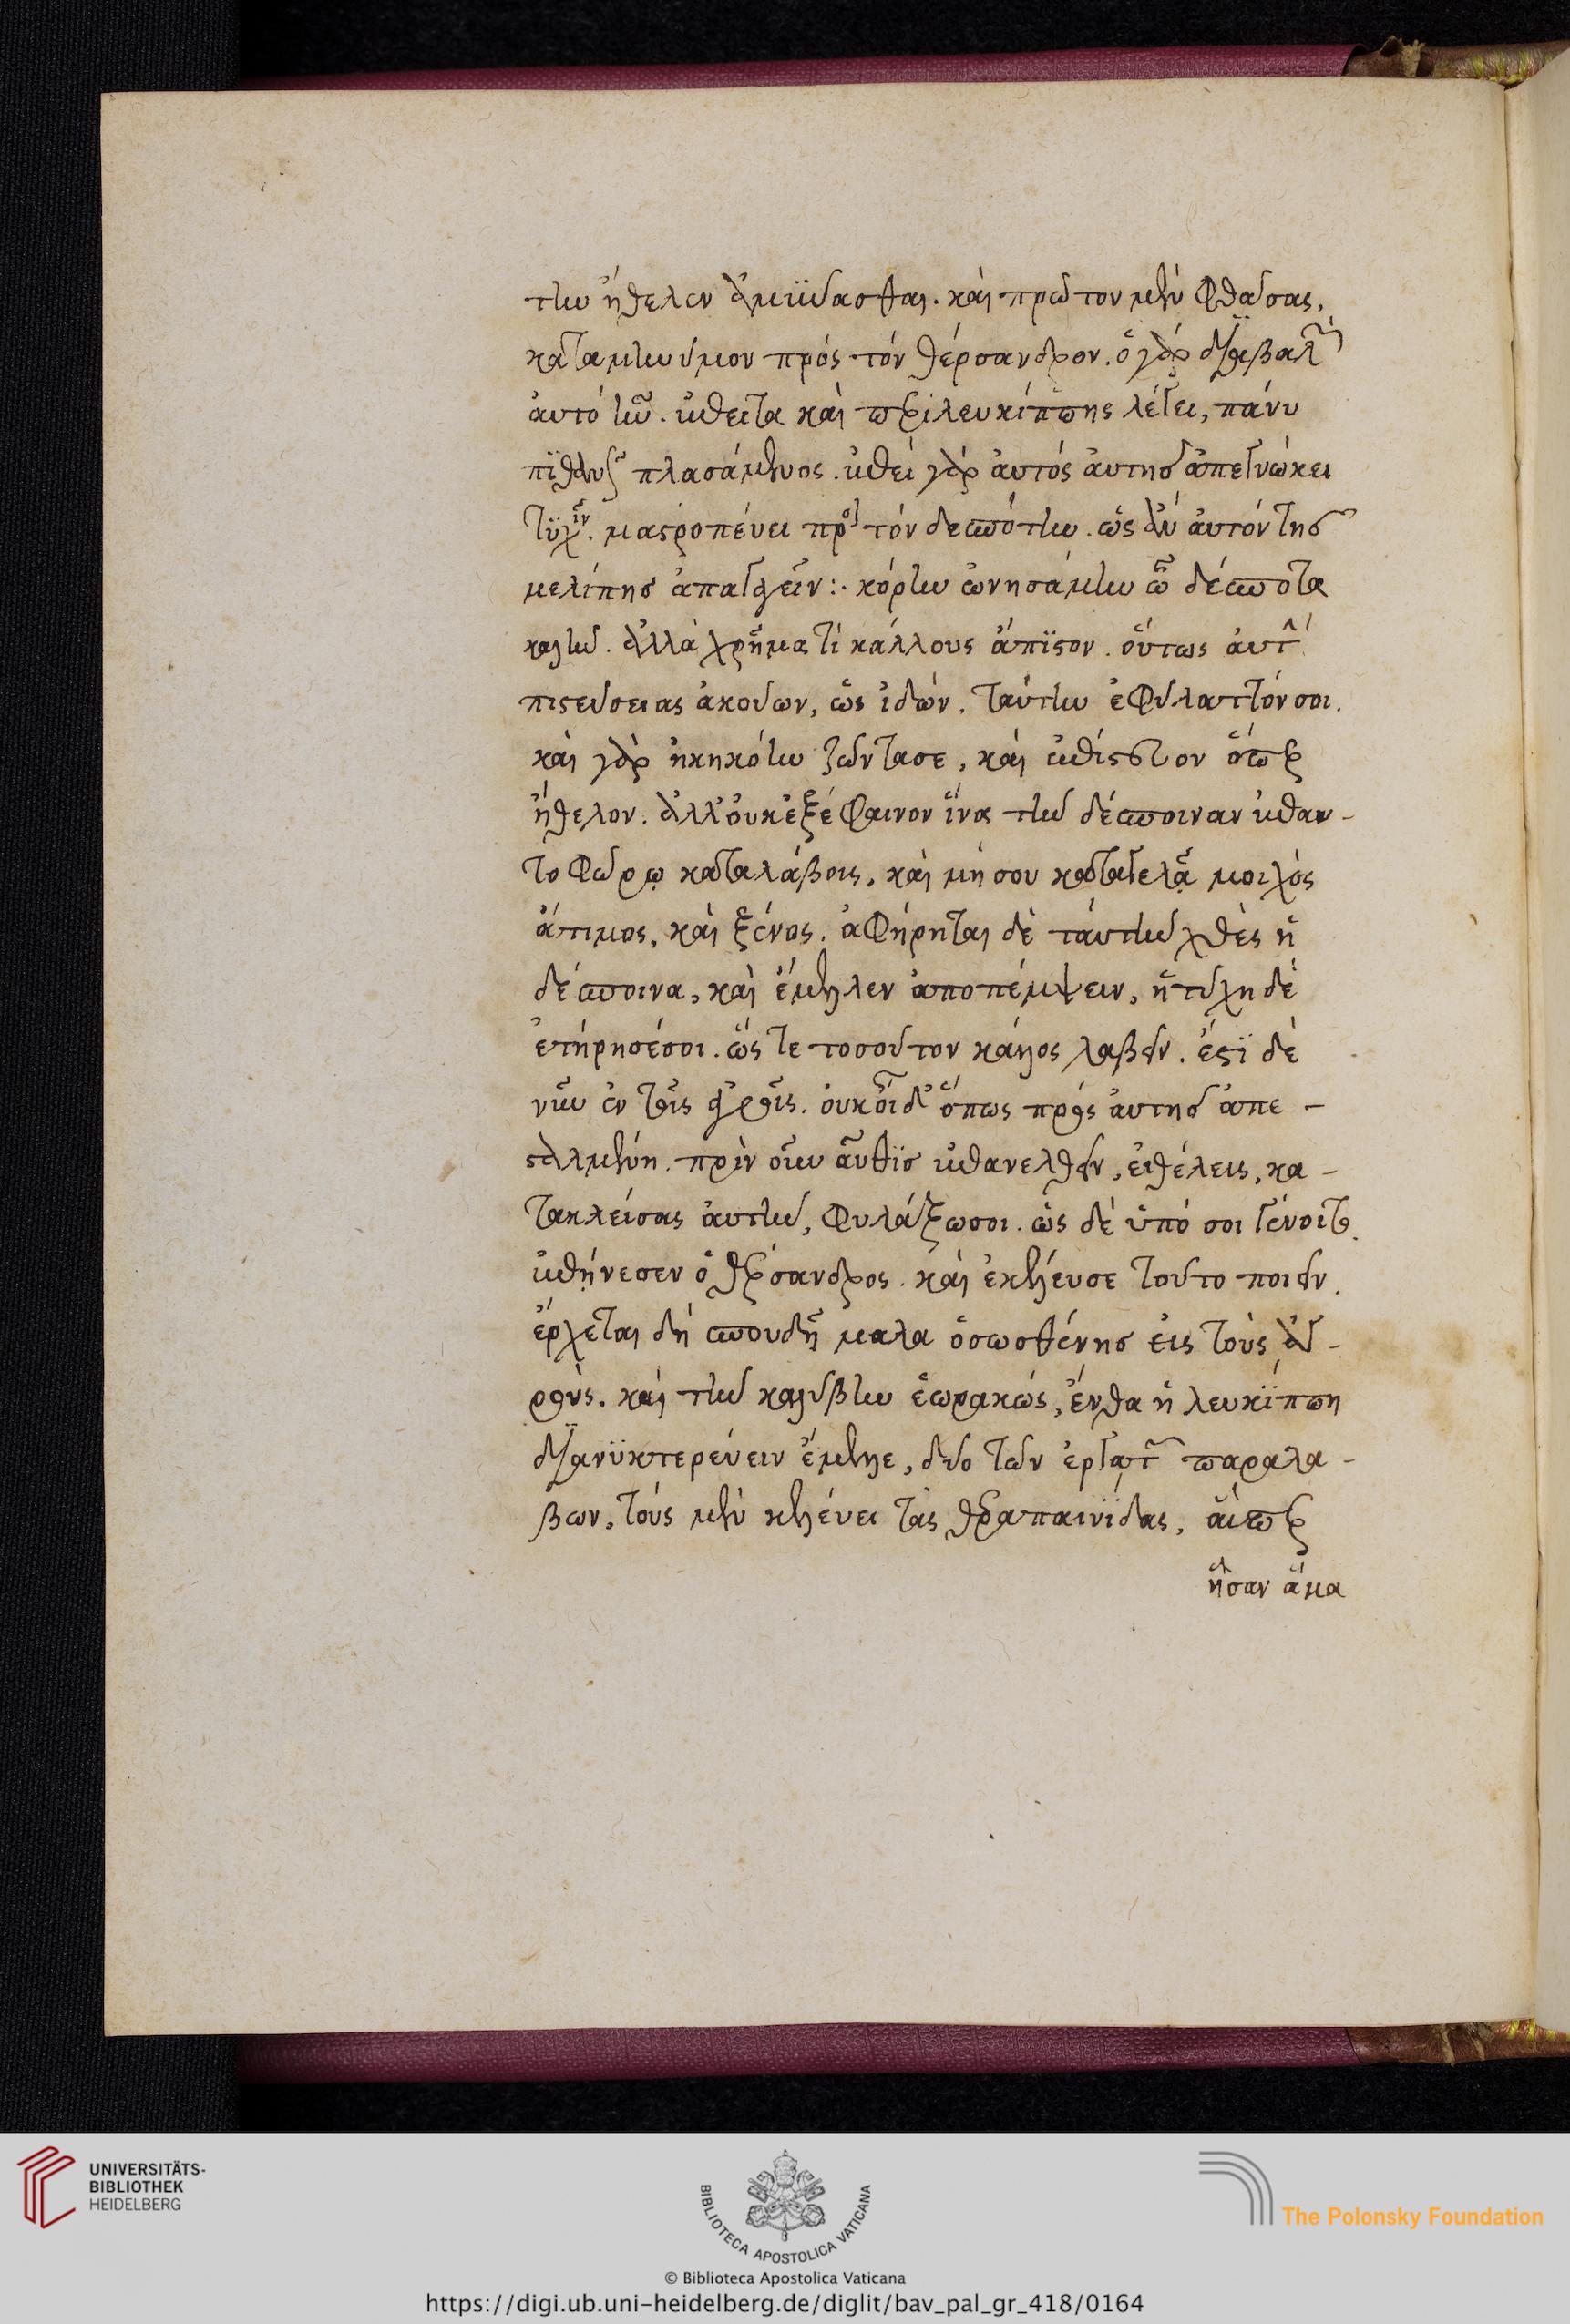 την ἤθελεν ἀμύνασθαι. καὶ πρῶτον μὲν φθάσας,
καταμηνύμον πρὸς τὸν θέρσανδρον. ὁ γὰρ διαβαλὼν
αὐτὸ ἦν. ἔπειτα καὶ περὶ λευκίππης λέγει, πάνυ
πιθανῶς πλασάμενος. ἐπεὶ γὰρ αὐτὸς αὐτῆς ἀπεγνώκει
τυχεῖν. μαστροπεύει πρὸς τὸν δεσπότην. ὡς ἂν αὐτὸν τῆς
μελίπης ἀπαγάγειν:. κόρην ὠνησάμην ὦ δέσποτα
καλήν. ἀλλὰ χρῆμα τί κάλλους ἄπιστον. οὕτως αὐτὴν
πιστεύσειας ἀκούων, ὡς ἰδών. ταύτην ἐφύλαττόν σοι.
καὶ γὰρ ἠκηκόην ζῶντα σε, καὶ ἐπίστευον ὅπερ
ἤθελον. ἀλλ' οὐκ ἐξέφαινον ἵνα τὴν δέσποιναν ἐπαυ-
τοφώρῳ καταλάβοις, καὶ μή σου καταγελᾷ μοιχὸς
ἄτιμος, καὶ ξένος. ἀφῄρηται δὲ ταύτην χθὲς ἡ
δέσποινα, καὶ ἔμελλεν ἀποπέμψειν, ἡ τύχη δὲ
ἐτήρησέ σοι. ὥς τε τοσοῦτον κάλλος λαβεῖν. ἔστι δὲ
νῦν ἐν τοῖς ἀγροῖς. οὐκ οἶδ' ὅπως πρὸς αὐτῆς ἀπε-
σταλμένη. πρὶν οὖν αὖθις ἐπανελθεῖν, εἰ θέλεις, κα-
τακλείσας αὐτήν, φυλάξω σοι. ὡς δὲ ὑπό σοι γένοιτο.
ἐπῄνεσεν ὁ θέρσανδρος. καὶ ἐκέλευσε τοῦτο ποιεῖν.
ἔρχεται δὴ σπουδῇ μάλα ὁ σωσθένης εἰς τοὺς ἀγ-
ρούς. καὶ τὴν καλύβην ἑωρακώς, ἔνθα ἡ λευκίππη
διανυκτερεύειν ἔμελλε, δύο τῶν ἐργατῶν παραλα-
βών, τοὺς μὲν κελεύει τὰς θεραπαινίδας, αἵπερ
ἦσαν ἅμα
UNIVERSITÄTS-
BIBLIOTHEK
HEIDELBERG
BIBLIOTECA APOSTOLICA VATICANA
The Polonsky Foundation
© Biblioteca Apostolica Vaticana
https://digi.ub.uni-heidelberg.de/diglit/bav_pal_gr_418/0164